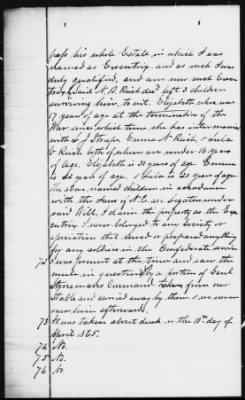 pass his whole Estate in which I was
named as Executrix and as such I was
duly qualified, and am now such Exe-
trix. Said N. B. Reish decd left 3 children
surviving him, to wit. Elizabeth who was
17 years of age at the termination of the
War since which time she has intermarried
with L J Emma A Reish &
Reish both of whom are under 16 years
of age. Elizabeth is 23 years of age Emma
is years of age &
the above named children in accordance
with the Laws of N.C. are legatees under
said Will, I claim the property as the Exe-
cutrix I never belonged to any society or
association that sewed or prepared anything
for any soldier in the Confederate service
72 I was present at the time and saw the
mule in question by a portion of Genl
Stonemans Command taken from our
Stable and carried away by them & we never
saw him afterwards.
73 It was taken about dusk on the 10th day of
April 1865.
74 No.
75 No.
76 No